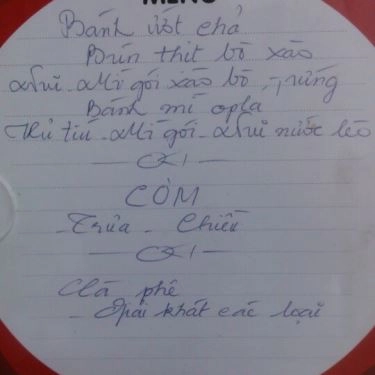 MENU
Bánh ướt chả
Bún thịt bò xào
Nuĩ - Mì gói xào bò, trứng
Bánh mì opla
Hủ tiú - Mì gói - Nuĩ nước lèo
CƠM
Trưa - Chiều
Cà phê
- Giải khát các loại